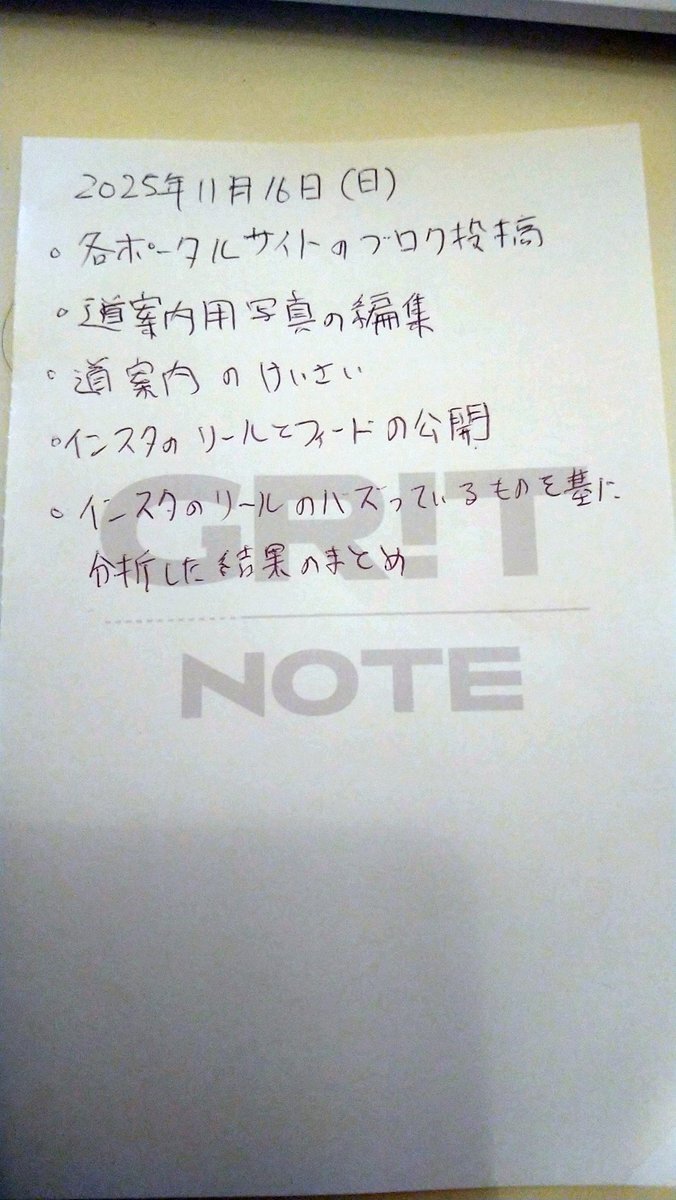 2025年11月16日(日)
。各ポータルサイトのブログ投稿
。道案内用写真の編集
。道案内のけいさい
。インスタのリールとフィードの公開
。インスタのリールのバズっているものを基に
分析した結果のまとめ
GR!T
NOTE